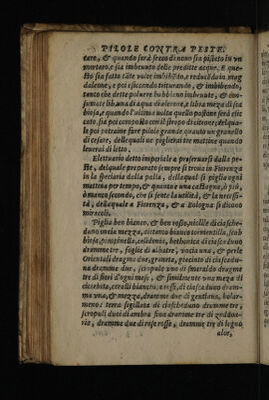 PILOLE CONTRA PESTE.
tare, & quando sarà secco di nouo sia pisto in vn
mortaro, e sia imbeuuto delle preditte acque. E que-
sto sia fatto tãte volte imbibendo, e reducendo in mag
daleone, e poi essiccando triturando, & imbibendo,
tanto che dette poluere habbiano imbeuuto, & con-
sumate lib. vna di aqua di aloe rosa, e libra meza di sca
biosa, e quando l'vltima volta questo pastone sarà esic
cato, sia poi composto con il siropo di cedro; del qua-
le poi potraine fare pilole grande quanto vn granello
di cesare, delle quali ne pigliarai tre mattine quando
leuerai di letto.
Elettuario detto imperiale a preseruarsi dalla pe-
ste, del quale preparato sempre si troua in Fiorenza
in la speciaria della palla, della qual si piglia ogni
mattina per tempo, & quanto è vna castagna, ò più,
ò manco secondo, che si sente la vtilità, & la necessi-
tà, della quale a Fiorenza, & a Bologna si dicono
miracoli.
Piglia ben bianco, & ben rosso, nicille di ciasche-
duno oncia mezza, dittamo bianco tormentilla, sca
biosa, pimpinella, celidonia, bethonica di ciascheduno
dramme tre, foglie di aliastre, nocita vna, & perle
Orientali dragme due, granata, giacinto di ciascedu-
na dramma due, scropulo vno di smeraldo dragme
tre di fiori d'ogni muse, & similmente vna meza di
cinebrita, coralli bianchi, e rossi, di ciascaduno dram-
ma vna, & mezza, dramme due di gentiana, bolar-
meno: terra sigillata di ciascheduno dramme tre,
scropuli dui di ambra fina dramme tre di zeddoe-
ria, dramme due di rose rosse, dramme tre di legno
aloe,